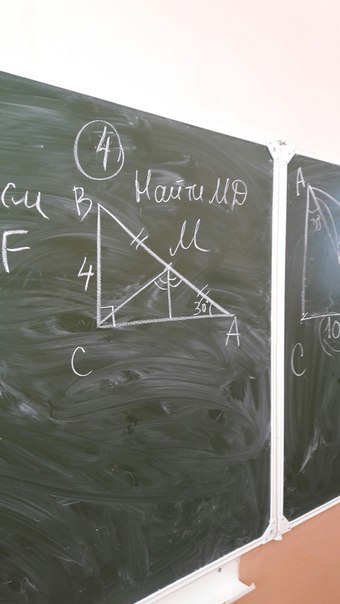 4
см
Найти MD
B
F
M
4
30°
A
C
A
30°
C
10